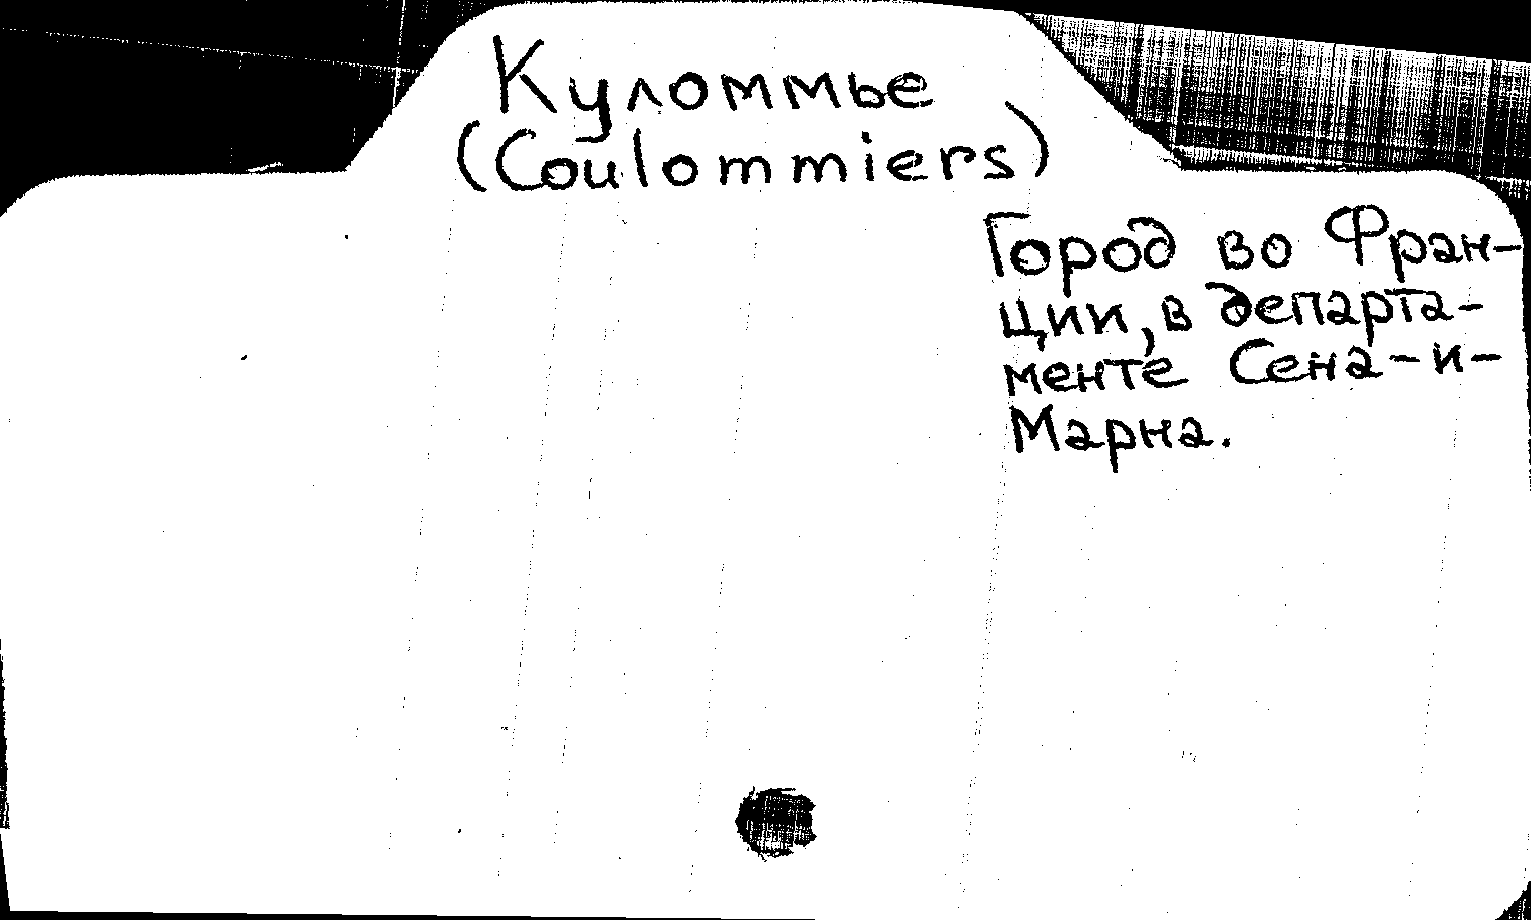 Куломмье
(Coulommiers)
Город во Фран-
ции, в департа-
менте Сена-и-
Марна.